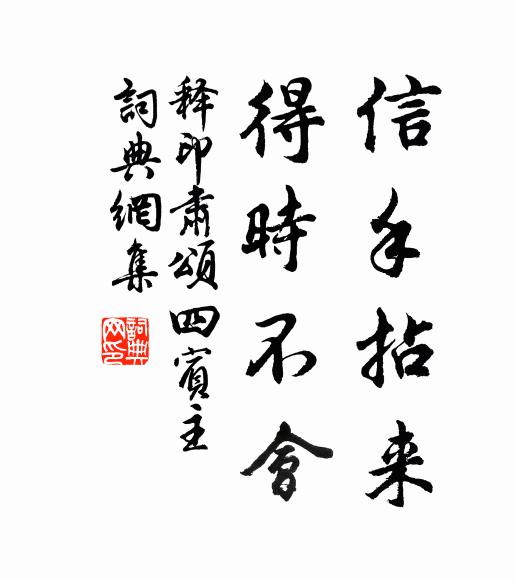 信手拈来
得時不會
释印肃頌四賓主
詞典網集
詞典网印